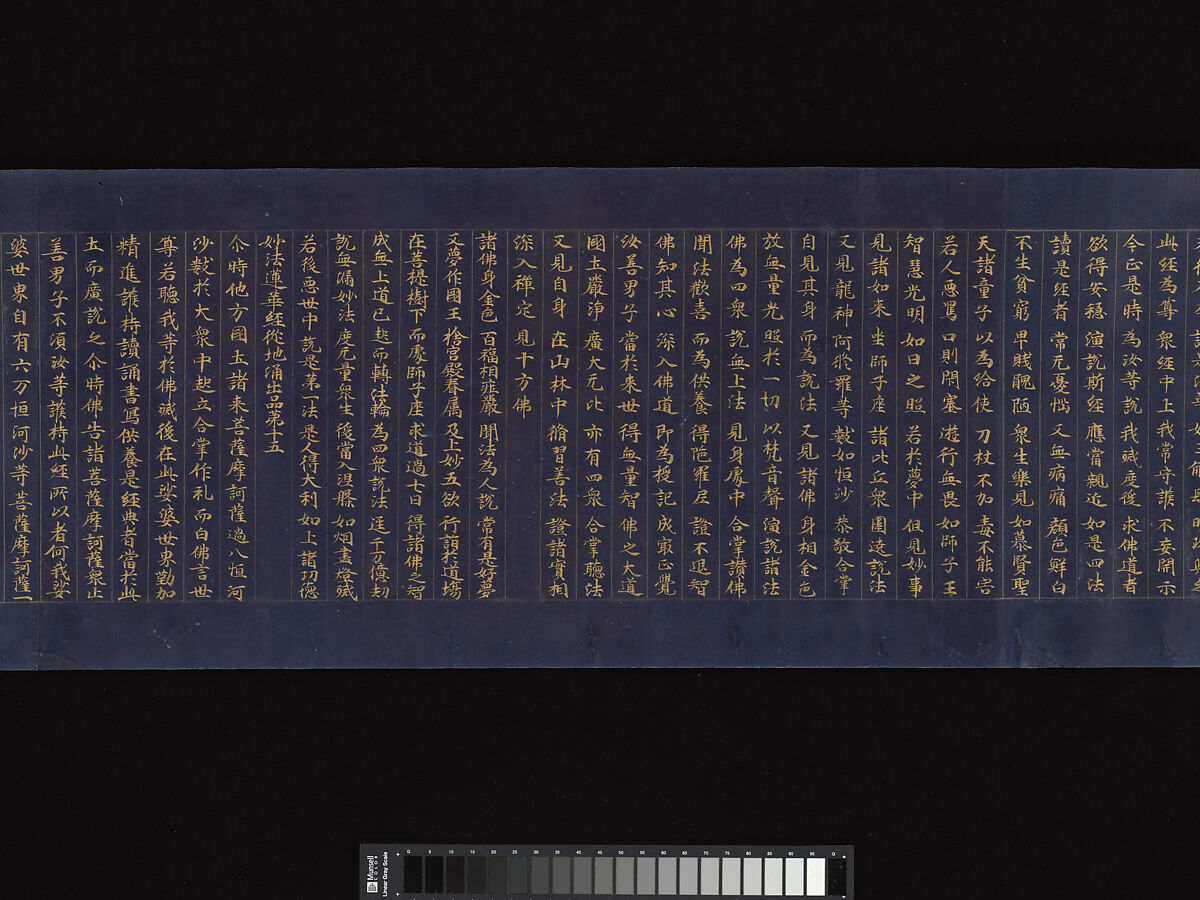 此経為尊 衆経中上 我常守護 不妄開示
今正是時 為汝等説 我滅度後 求佛道者
欲得安穏 演説斯経 應當親近 如是四法
讀是経者 常无憂惱 又無病痛 顔色鮮白
不生貧窮 卑賤醜陋 衆生樂見 如慕賢聖
天諸童子 以為給使 刀杖不加 毒不能害
若人惡罵 口則閇塞 遊行無畏 如師子王
智慧光明 如日之照 若於夢中 但見妙事
見諸如来 坐師子座 諸比丘衆 圍遶説法
又見龍神 阿修羅等 數如恒沙 恭敬合掌
自見其身 而為説法 又見諸佛 身相金色
放無量光 照於一切 以梵音聲 演説諸法
佛為四衆 説無上法 見身處中 合掌讃佛
聞法歡喜 而為供養 得陁羅尼 證不退智
佛知其心 深入佛道 即為授記 成㝡正覺
汝善男子 當於来世 得無量智 佛之大道
國土嚴浄 廣大无比 亦有四衆 合掌聽法
又見自身 在山林中 脩習善法 證諸實相
深入禅定 見十方佛
諸佛身金色 百福相莊嚴 聞法為人説 常有是好夢
又夢作國王 捨宮殿眷属 及上妙五欲 行詣於道場
在菩提樹下 而處師子座 求道過七日 得諸佛之智
成無上道已 起而轉法輪 為四衆説法 逕千万億劫
説無漏妙法 度无量衆生 後當入涅槃 如烟盡燈滅
若後惡世中 説是第一法 是人得大利 如上諸功德
妙法蓮華経従地涌出品第十五
尒時他方國土諸来菩薩摩訶薩過八恒河
沙數於大衆中起立合掌作礼而白佛言世
尊若聽我等於佛滅後在此娑婆世界勤加
精進護持讀誦書寫供養是経典者當於此
土而廣説之尒時佛告諸菩薩摩訶薩衆止
善男子不湏汝等護持此経所以者何我娑
婆世界自有六万恒河沙等菩薩摩訶薩一
Munsell COLOR
Linear Gray Scale
G 5 10 15 20 25 30 35 40 45 50 55 60 65 70 75 80 85 90 95 G